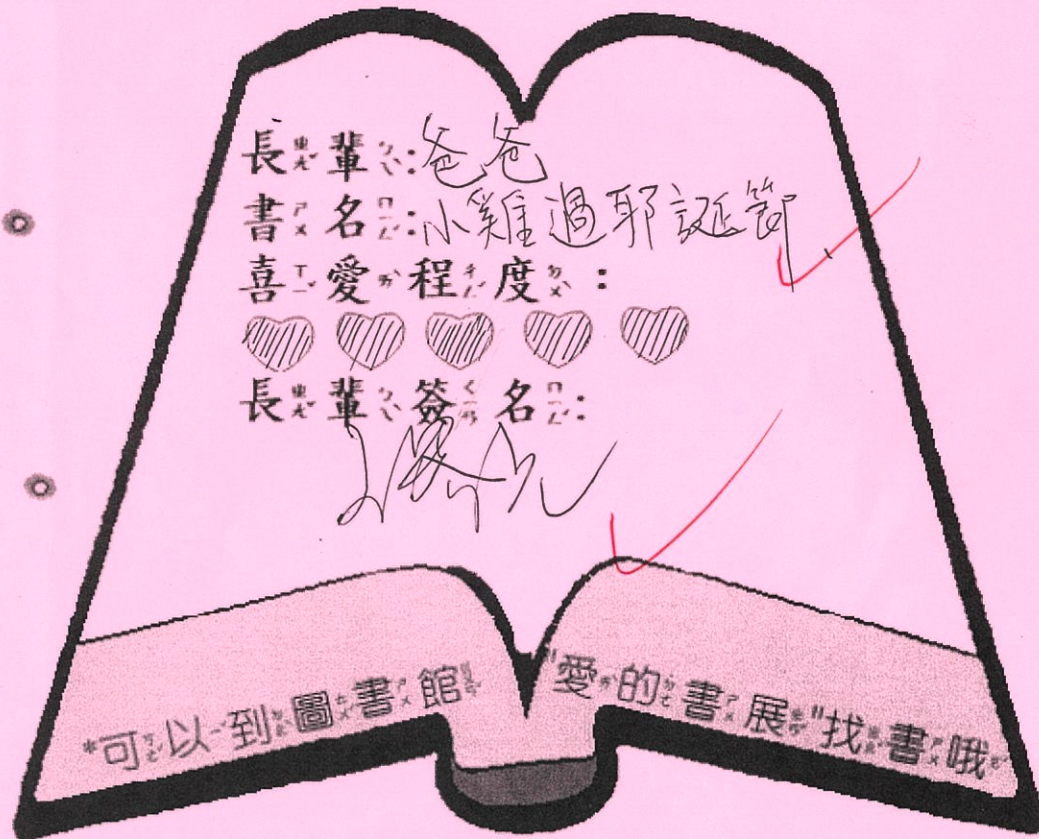 長輩:爸爸
書名:小雞過耶誕節
喜愛程度:
長輩簽名:
*可以到圖書館"愛的書展"找書哦